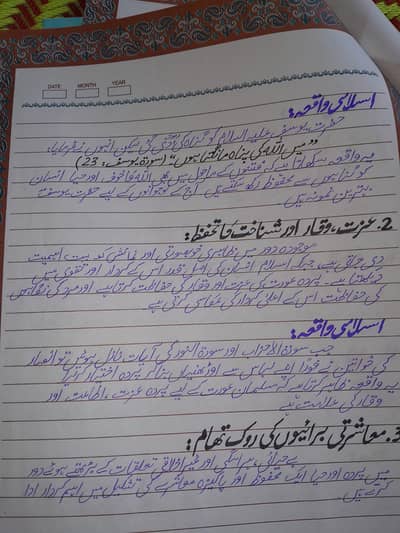 DATE MONTH YEAR
اسلامی واقعہ:
حضرت یوسف علیہ السلام کو گناہ کی دعوت دی گئی لیکن انہوں نے فرمایا:
"میں اللہ کی پناہ مانگتا ہوں" (سورۃ یوسف: 23)
یہ واقعہ سکھاتا ہے کہ فتنوں کے ماحول میں بھی اللہ کا خوف اور حیا انسان
کو گناہوں سے محفوظ رکھ سکتے ہیں آج کے نوجوانوں کے لیے حضرت یوسفؑ
بہترین نمونہ ہیں
2. عزت، وقار اور شناخت کا تحفظ:
موجودہ دور میں ظاہری خوبصورتی اور نمائش کو بہت اہمیت
دی جاتی ہے، جبکہ اسلام انسان کی اصل قدر اس کے کردار اور تقویٰ میں
دیکھتا ہے۔ پردہ عورت کی عزت اور وقار کی حفاظت کرتا ہے اور مرد کی نگاہوں
کی حفاظت اس کے اعلیٰ کردار کی عکاسی کرتی ہے
اسلامی واقعہ:
جب سورۃ الاحزاب اور سورۃ النور کی آیات نازل ہوئیں تو انصار
کی خواتین نے فوراً اپنے لباس سے اوڑھنیاں بنا کر پردہ اختیار کر لیا
یہ واقعہ ظاہر کرتا ہے کہ مسلمان عورت کے لیے پردہ عزت، اطاعت اور
وقار کی علامت ہے
3. معاشرتی برائیوں کی روک تھام:
بے حیائی، ہراسگی اور غیر اخلاقی تعلقات کے بڑھتے ہوئے دور
میں پردہ اور حیا ایک محفوظ اور پاکیزہ معاشرے کی تشکیل میں اہم کردار ادا
کرتے ہیں۔